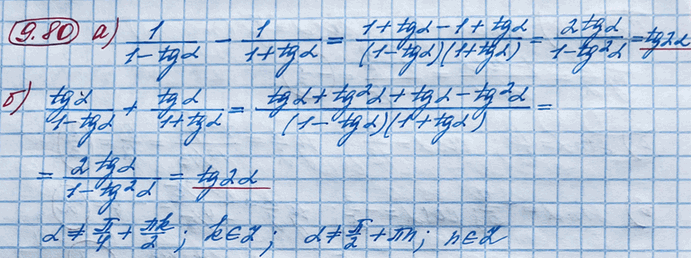 9.80 а) 1/(1-tgα) - 1/(1+tgα) = (1+tgα-1+tgα)/((1-tgα)(1+tgα)) = 2tgα/(1-tg²α) = tg2α
б) tgα/(1-tgα) + tgα/(1+tgα) = (tgα+tg²α+tgα-tg²α)/((1-tgα)(1+tgα)) =
= 2tgα/(1-tg²α) = tg2α
α ≠ π/4 + πk/2; k∈Z; α ≠ π/2 + πn; n∈Z